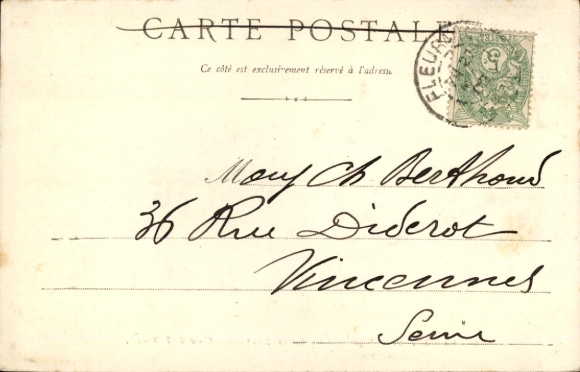 CARTE POSTALE
Ce côté est exclusivement réservé à l'adresse
FLEUR
5
Ch Berthoud
36 Rue Diderot
Vincennes
Seine